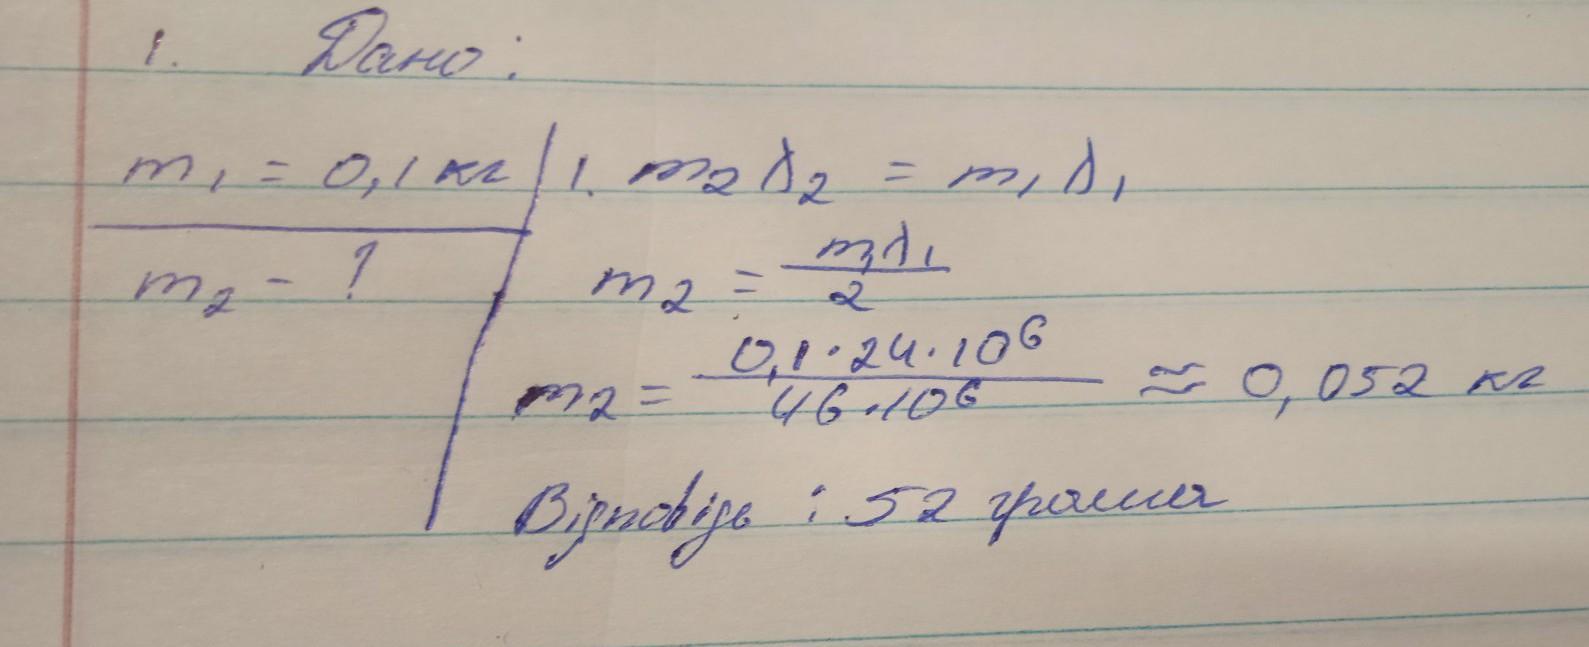 1. Дано:
m₁ = 0,1 кг
m₂ - ?
1. m₂ λ₂ = m₁ λ₁
m₂ = m₁λ₁ / 2
m₂ = 0,1·24·10⁶ / 46·10⁶ ≈ 0,052 кг
Відповідь : 52 грами